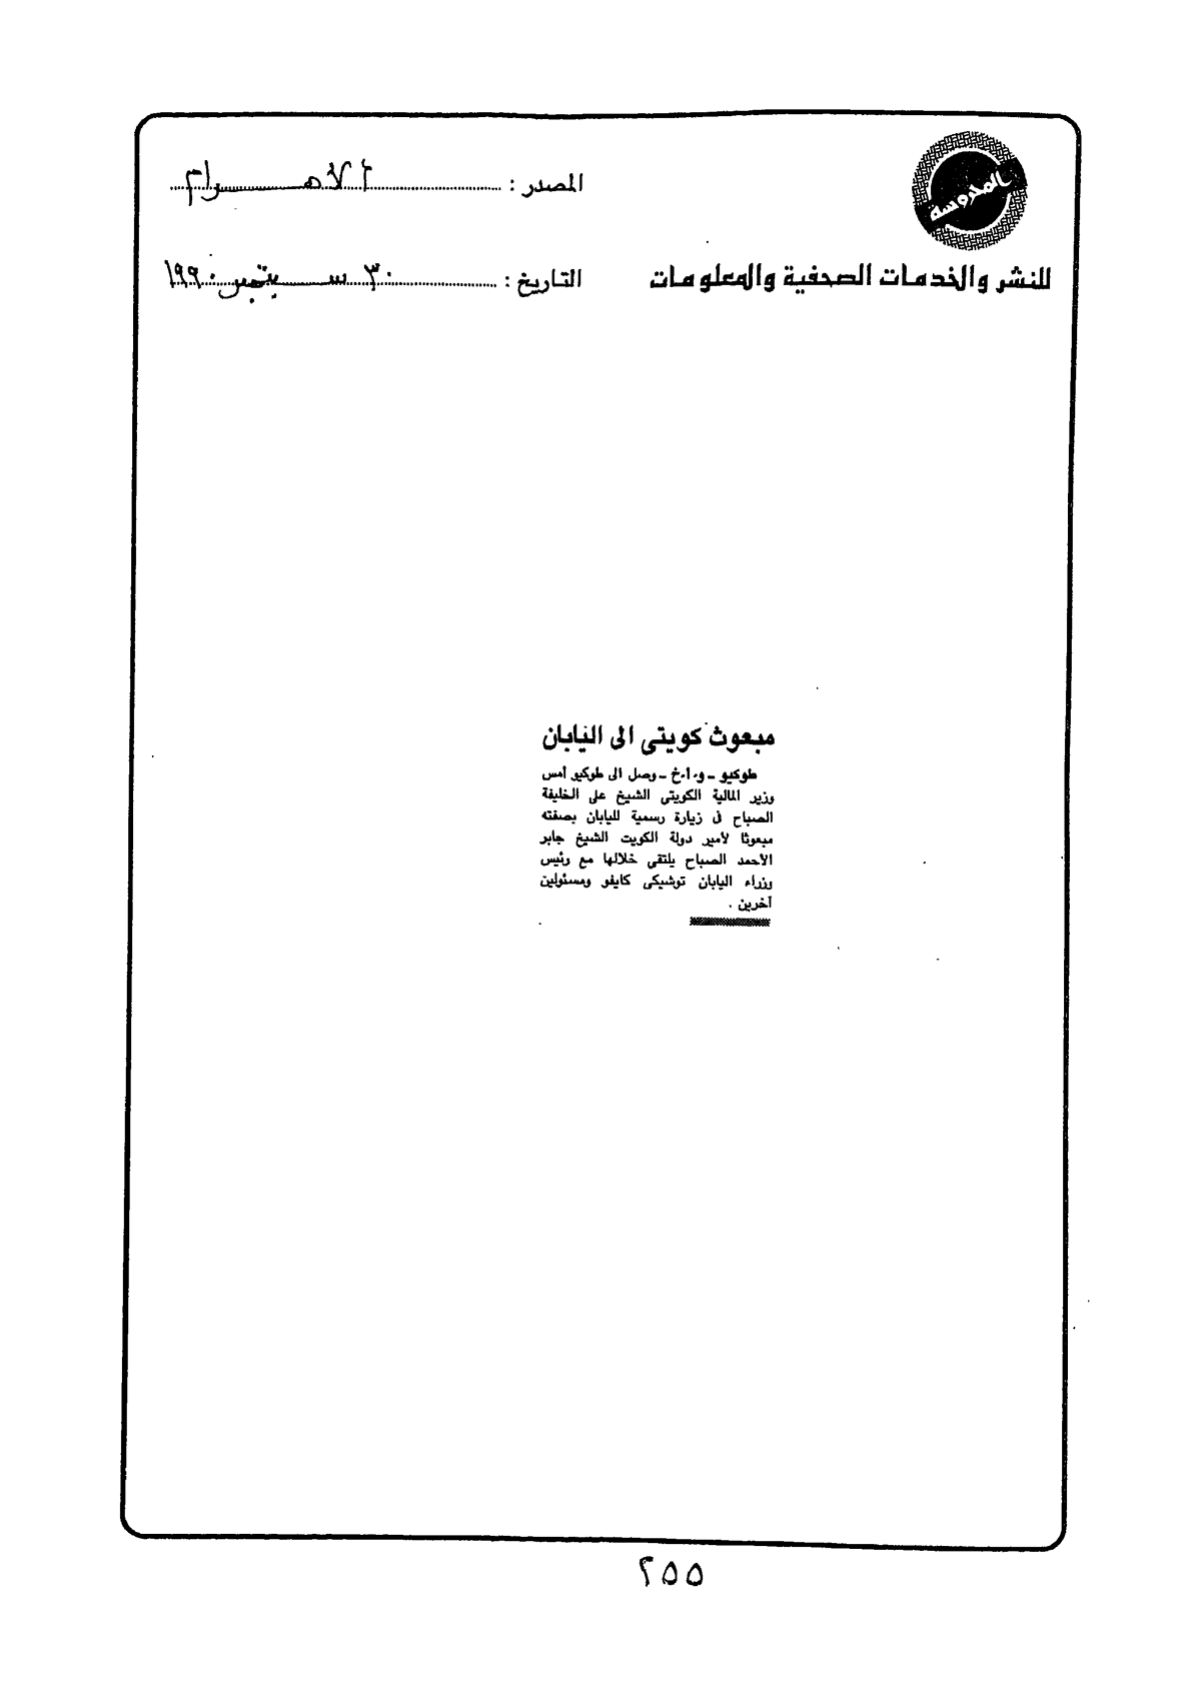 المحروسة
المصدر : الأهـــرام
للنشر والخدمات الصحفية والمعلومات
التاريخ : ٣٠ ســبتمبر ١٩٩٠
مبعوث كويتى الى اليابان
طوكيو ـ و.أ.خ ـ وصل الى طوكيو أمس
وزير المالية الكويتى الشيخ على الخليفة
الصباح فى زيارة رسمية لليابان بصفته
مبعوثا لأمير دولة الكويت الشيخ جابر
الأحمد الصباح يلتقى خلالها مع رئيس
وزراء اليابان توشيكى كايفو ومسئولين
آخرين .
٢٥٥